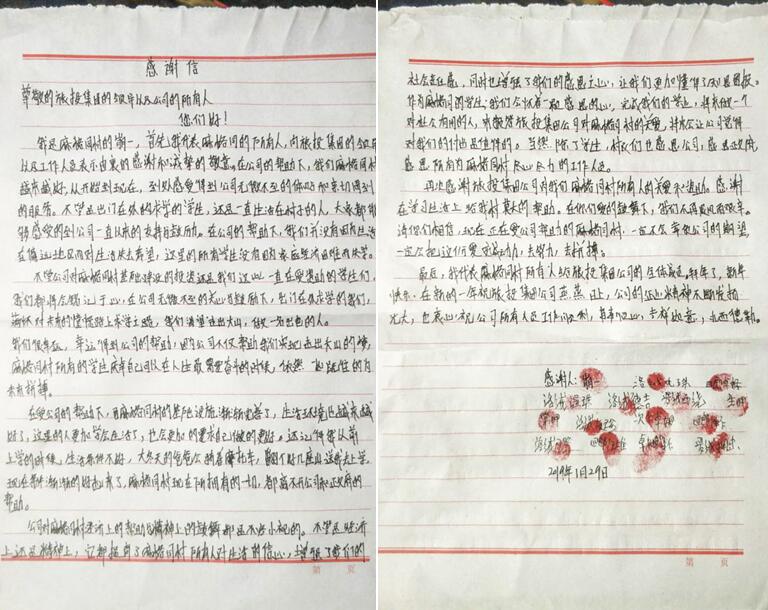 感谢信
尊敬的旅投集团的领导以及公司的所有人
你们好！
我是麻塔同村的 一，首先我代表麻塔同的所有人，向旅投集团的领导
以及工作人员表示由衷的感谢和诚挚的敬意。在公司的帮助下，我们麻塔同村
越来越好，从开始到现在，到处感受得到公司无微不至的体贴和亲切周到
的服务。不管是出门在外的求学的学生，还是一直生活在村子的人，大家都能
够感受的到公司一直以来的支持与鼓励。在公司的帮助下，我们并没有因为生活
在偏远地区而对生活失去希望，这里的所有学生没有因为家庭经济困难而失学。
不管公司对麻塔同村基础建设的投资还是我们这些一直在受资助的学生们，
我们都将会铭记于心，在公司无微不至的关心与鼓励下，出门在外求学的我们，
满怀对未来的憧憬踏上求学之路，我们渴望走出大山，做一名出色的人。
我们很幸运，幸运得到公司的帮助，因为公司不仅帮助我们实现走出大山的梦，
麻塔同村所有的学生庆幸自己可以在人生最需要奋斗的时候，依然 的为
未来拼搏。
在受公司的帮助下，麻塔同村的基础设施渐渐完善了，生活环境也越来越
好了，这里的人更加学会生活了，也会更加的要求自己做的更好。还记得我以前
上学的时候，生活条件不好，大冬天的爸爸会骑着摩托车，翻个好几座山送我去上学。
现在条件渐渐的好起来了，麻塔同村现在所拥有的一切，都离不开公司和政府的
帮助。
公司对麻塔同村经济上的帮助与精神上的鼓舞都是不容小视的。不管是经济
上还是精神上，它都提高了麻塔同村所有人对生活的信心，增强了我们的
社会责任感，同时也增强了我们的感恩之心，让我们更加懂得了知恩图报。
作为麻塔同的学生，我们会怀着一颗感恩的心，完成我们的学业，将来做一个
对社会有用的人，来报答旅投集团公司对麻塔同村的关爱，并会让公司觉得
对我们的付出是值得的，当然除了学生，村民们也感恩公司，感恩政府，
感恩所有为麻塔同村尽心尽力的工作人员。
再次感谢旅投集团公司对我们麻塔同村所有人的关爱和资助。感谢
在学习生活上给我们莫大的帮助。在你们爱的鼓舞下，我们不再畏风雨艰辛。
请你们相信，现在正在受公司帮助的麻塔同村，一定不会辜负公司的期望，
一定会把这份爱变成动力，去努力，去拼搏。
最后，我代表麻塔同村所有人给旅投集团公司的全体 ，新年了，新年
快乐，在新的一年祝旅投集团公司蒸蒸日上，公司的企业精神不断发扬
光大，也衷心祝公司所有人员工作顺利，身享 心，吉祥如意，扎西德勒。
感谢人：
2019年1月29日
第 页
第 页